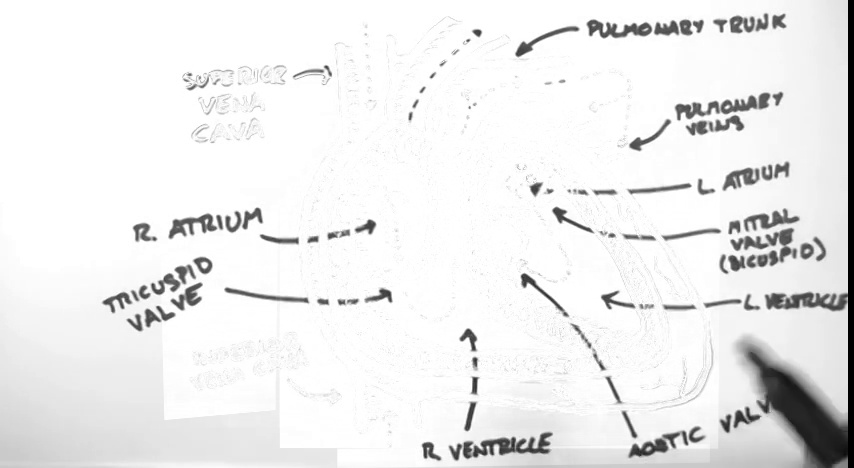 PULMONARY TRUNK
SUPERIOR
VENA
CAVA
PULMONARY
VEINS
L. ATRIUM
R. ATRIUM
MITRAL
VALVE
(BICUSPID)
TRICUSPID
VALVE
L. VENTRICLE
VENA CAVA
R. VENTRICLE
AORTIC VALV